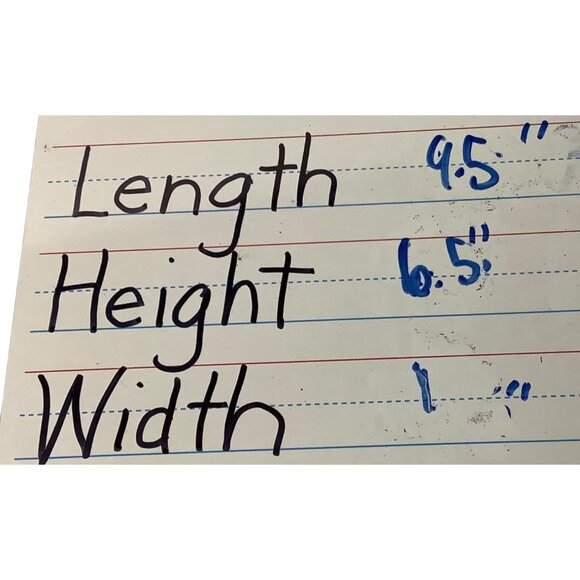 Length 9.5"
Height 6.5"
Width 1"